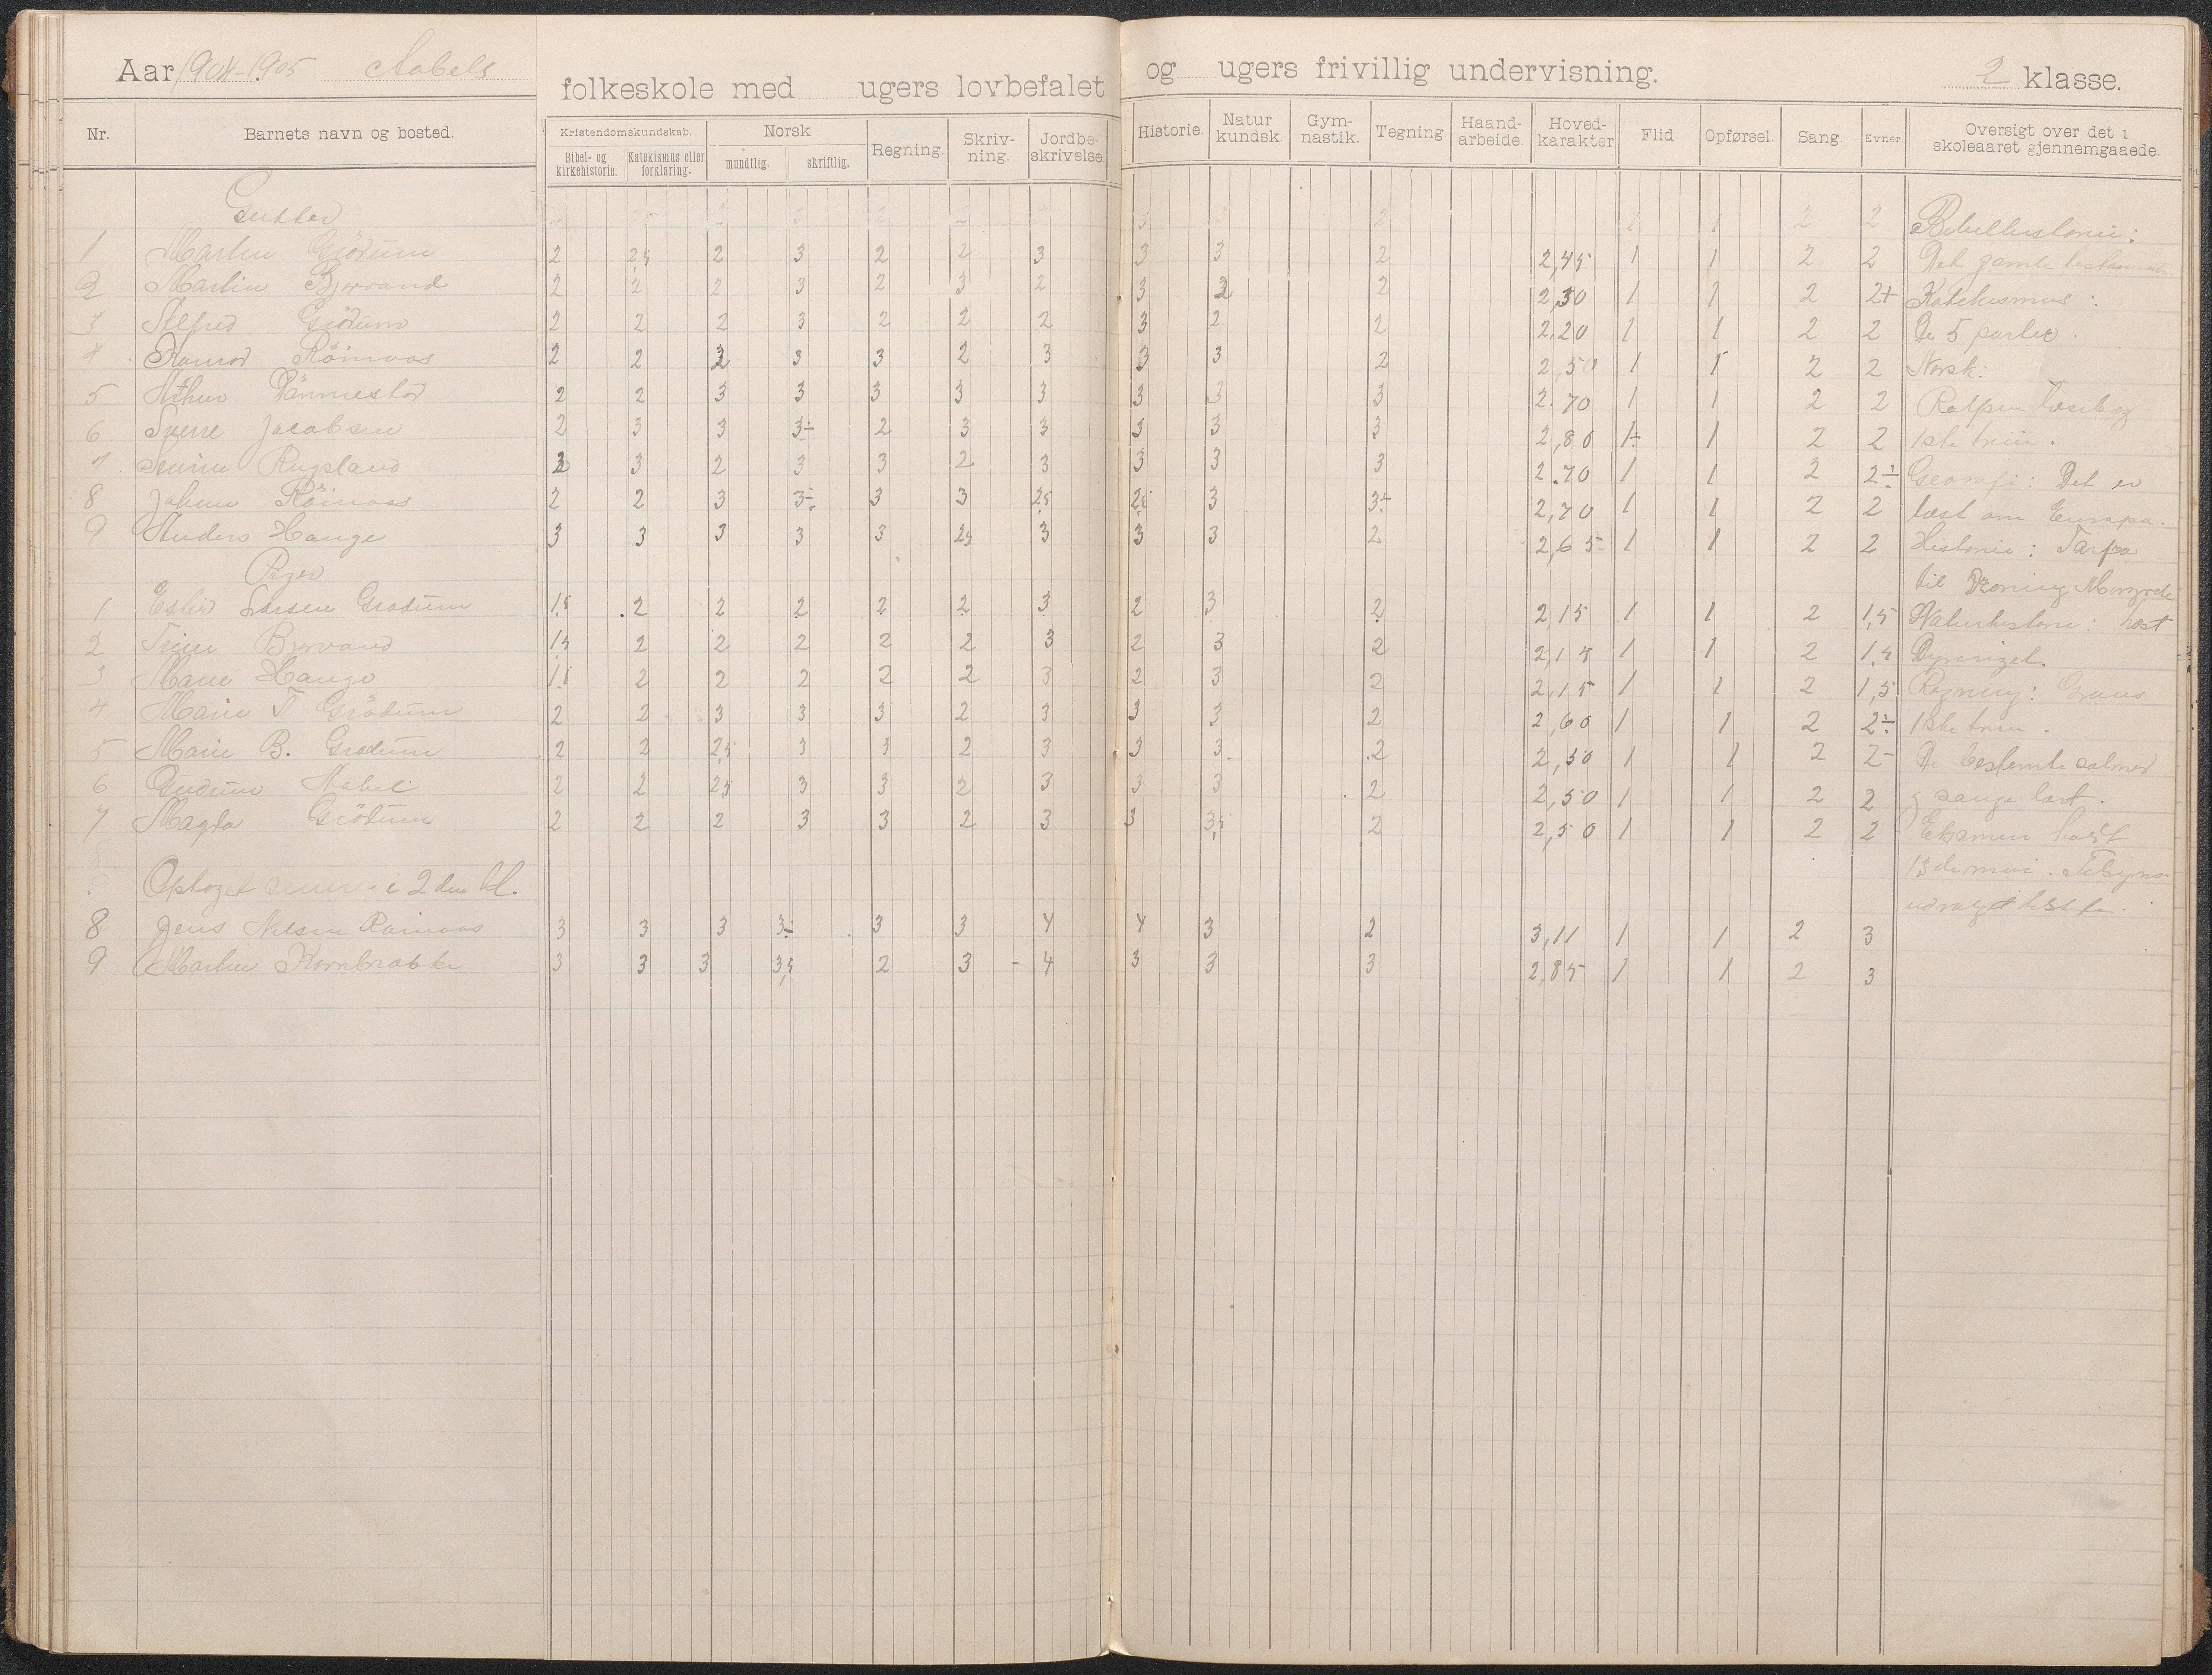 Aar 1904-1905 Aabels folkeskole med ugers lovbefalet og ugers frivillig undervisning. 2 klasse.
Nr. Barnets navn og bosted. Kristendomskundskab. Bibel- og kirkehistorie. Katekismus eller forklaring. Norsk mundtlig. skriftlig. Regning. Skriv-ning. Jordbe-skrivelse. Historie. Natur kundsk. Gym-nastik. Tegning Haand-arbeide. Hoved-karakter Flid. Opførsel. Sang. Evner. Oversigt over det i skoleaaret gjennemgaaede.
Gutter Bibelhistorie:
1 Martin Grödum 2 2,5 2 3 2 2 3 3 3 2 2,45 1 1 2 2 Det gamle testamente
2 Martin Bjorvand 2 2 2 3 2 3 2 3 2 2 2,30 1 1 2 2+ Katekismus:
3 Alfred Grödum 2 2 2 3 2 2 2 3 2 2 2,20 1 1 2 2 De 5 parter.
4 Röinaas 2 2 3 3 3 2 3 3 3 2 2,50 1 1 2 2 Norsk:
5 Arthur 2 2 3 3 3 3 3 3 3 3 2.70 1 1 2 2 læsebog
6 Sverre Jacobsen 2 3 3 3÷ 2 3 3 3 3 3 2,80 1÷ 1 2 2 1ste trin.
7 Rugsland 2 3 2 3 3 2 3 3 3 3 2.70 1 1 2 2÷ Geografi: Det er
8 Johan Röinaas 2 2 3 3÷ 3 3 2,5 2,5 3 3÷ 2,70 1 1 2 2 læst om Europa.
9 Anders Hauge 3 3 3 3 3 2,5 3 3 3 2 2,65 1 1 2 2 Historie:
Piger til
1 Ester Larsen Grødum 1,5 2 2 2 2 2 3 2 3 2 2,15 1 1 2 1,5 Naturhistorie: læst
2 Trine Bjorvand 1,5 2 2 2 2 2 3 2 3 2 2,15 1 1 2 1,5 Dyreriget.
3 Marie Hauge 1,5 2 2 2 2 2 3 2 3 2 2,15 1 1 2 1,5 Regning:
4 Marie T Grödum 2 2 3 3 3 2 3 3 3 2 2,60 1 1 2 2÷ 1ste trin.
5 Marie B. Grødum 2 2 2,5 3 3 2 3 3 3 2 2,50 1 1 2 2- De bestemte salmer
6 Gudrun Aabel 2 2 2,5 3 3 2 3 3 3 2 2,50 1 1 2 2 og sange lært.
7 Magda Grödum 2 2 2 3 3 2 3 3 3,5 2 2,50 1 1 2 2 Eksamen holdt
Optaget senere i 2den kl. 13de mai. Tilsyns-
udvalget
8 Jens Nilsen Röinaas 3 3 3 3÷ 3 3 4 4 3 2 3,11 1 1 2 3
9 Martin Kornbrække 3 3 3 3,5 2 3 - 4 3 3 3 2,85 1 1 2 3